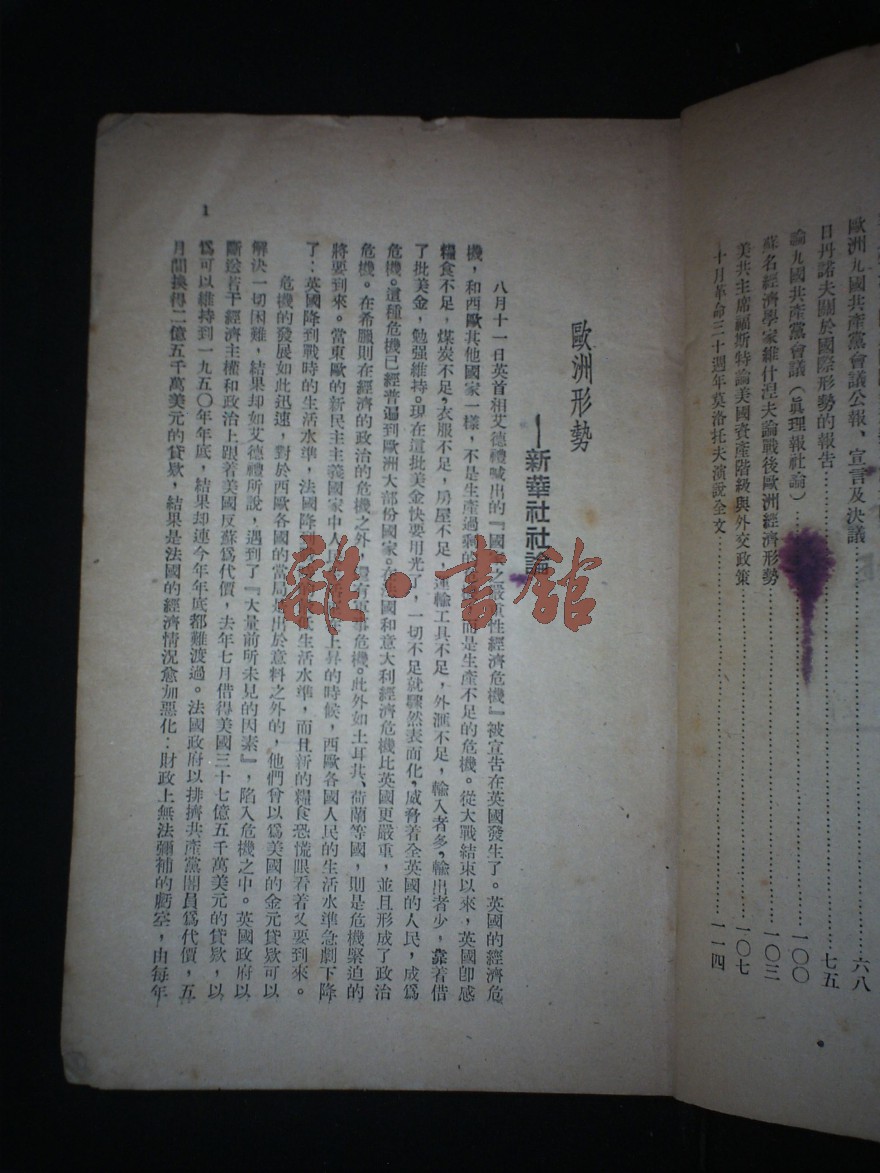 歐洲九國共產黨會議公報、宣言及決議……六八
日丹諾夫關於國際形勢的報告……七五
論九國共產黨會議（眞理報社論）……一〇〇
蘇名經濟學家維什涅夫論戰後歐洲經濟形勢……一〇三
美共主席福斯特論美國資產階級與外交政策……一〇七
十月革命三十週年莫洛托夫演說全文……一一四
歐洲形勢
——新華社社論
八月十一日英首相艾德禮喊出的『國 之嚴重性經濟危機』被宣告在英國發生了。英國的經濟危
機，和西歐其他國家一樣，不是生產過剩的 而是生產不足的危機。從大戰結束以來，英國卽感
糧食不足，煤炭不足，衣服不足，房屋不足，運輸工具不足，外滙不足，輸入者多，輸出者少，靠着借
了批美金，勉强維持。現在這批美金快要用光了，一切不足就驟然表面化，威脅着全英國的人民，成爲
危機。這種危機已經普遍到歐洲大部份國家。在 國和意大利經濟危機比英國更嚴重，並且形成了政治
危機。在希臘則在經濟的政治的危機之外，還有軍事危機。此外如土耳其、荷蘭等國，則是危機緊迫的
將要到來。當東歐的新民主主義國家中人民 上昇的時候，西歐各國人民的生活水準急劇下降
了：英國降到戰時的生活水準，法國降到 生活水準，而且新的糧食恐慌眼看着又要到來。
危機的發展如此迅速，對於西歐各國的當局是出於意料之外的，他們曾以爲美國的金元貸欵可以
解決一切困難，結果却如艾德禮所說，遇到了『大量前所未見的因素』，陷入危機之中。英國政府以
斷送若干經濟主權和政治上跟着美國反蘇爲代價，去年七月借得美國三十七億五千萬美元的貸欵，以
爲可以維持到一九五〇年年底，結果却連今年年底都難渡過。法國政府以排擠共產黨閣員爲代價，五
月間換得二億五千萬美元的貸欵，結果是法國的經濟情況愈加惡化：財政上無法彌補的虧空，由每年
1
雜·書館